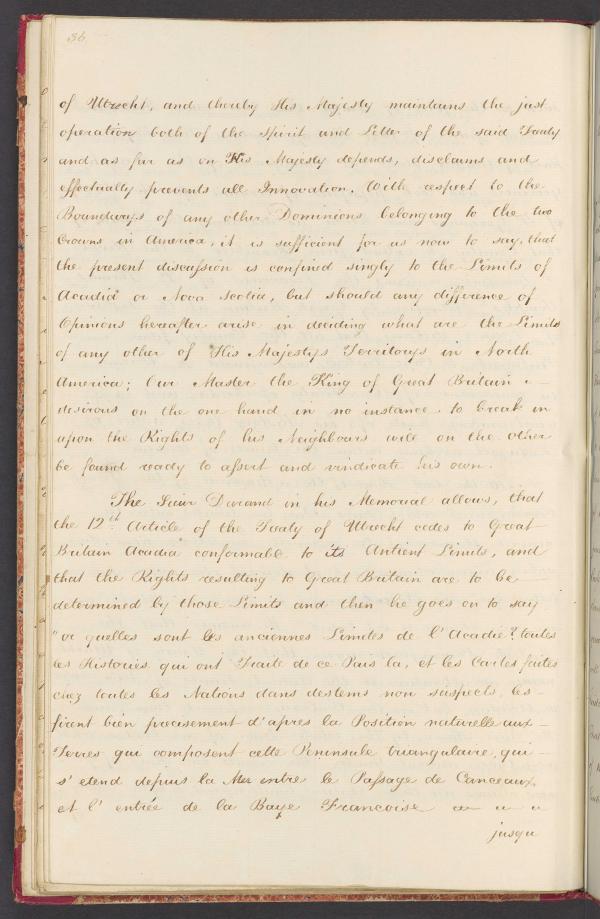 36
of Utrecht, and thereby His Majesty maintains the just
operation both of the Spirit and Letter of the said Treaty
and as far as on His Majesty depends, disclaims and
effectually prevents all Innovation. With respect to the
Boundarys of any other Dominions belonging to the two
Crowns in America, it is sufficient for us now to say, that
the present discussion is confined singly to the Limits of
Acadia or Nova Scotia, but should any difference of
Opinions hereafter arise in deciding what are the Limits
of any other of His Majestys Territorys in North
America; Our Master the King of Great Britain
desirous on the one hand in no instance to break in
upon the Rights of his Neighbours will on the other
be found ready to assert and vindicate his own.
The Sieur Durand in his Memorial allows, that
the 12th Article of the Treaty of Utrecht cedes to Great
Britain Acadia conformable to its Antient Limits, and
that the Rights resulting to Great Britain are to be
determined by those Limits and then he goes on to say
"or quelles sont les anciennes Limites de l'Acadie? toutes
les Histories qui ont Traite de ce Pais la, et les Cartes faites
chez toutes les Nations dans des tems non suspects, les
firent bien precisement d'apres la Position naturelle aux
Terres qui composent cette Peninsule triangulaire, qui
s'etend depuis la Mer entre le Passage de Canceaux,
et l'entrée de la Baye Francoise
jusqu